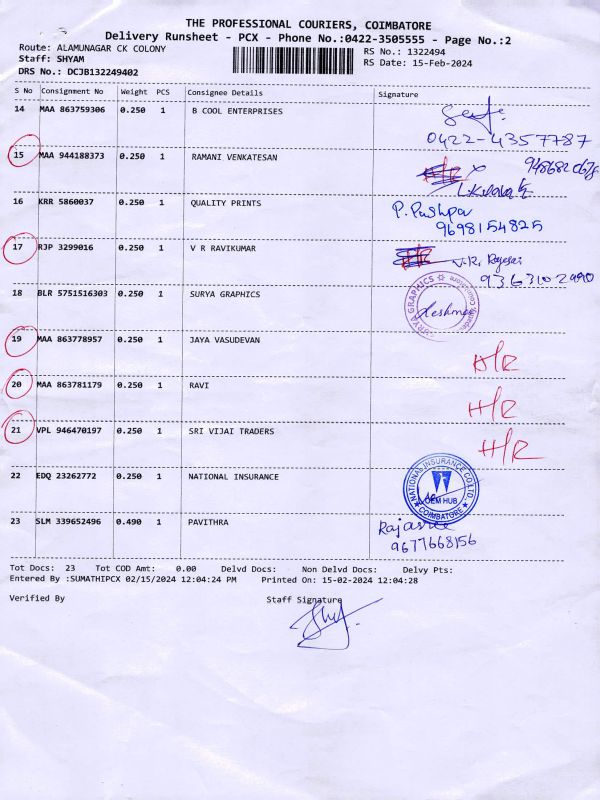 THE PROFESSIONAL COURIERS, COIMBATORE
Delivery Runsheet - PCX - Phone No.:0422-3505555 - Page No.:2
Route: ALAMUNAGAR CK COLONY
RS No.: 1322494
Staff: SHYAM
RS Date: 15-Feb-2024
DRS No.: DCJB132249402
S No Consignment No Weight PCS Consignee Details Signature
14 MAA 863759306 0.250 1 B COOL ENTERPRISES
0422-4357787
15 MAA 944188373 0.250 1 RAMANI VENKATESAN
16 KRR 5860037 0.250 1 QUALITY PRINTS P. Pushpa
9698154825
17 RJP 3299016 0.250 1 V R RAVIKUMAR
9363102990
18 BLR 5751516303 0.250 1 SURYA GRAPHICS
SURYA GRAPHICS
19 MAA 863778957 0.250 1 JAYA VASUDEVAN H/R
20 MAA 863781179 0.250 1 RAVI H/R
21 VPL 946470197 0.250 1 SRI VIJAI TRADERS H/R
22 EDQ 23262772 0.250 1 NATIONAL INSURANCE
NATIONAL INSURANCE CO LTD.
OEM HUB
COIMBATORE
23 SLM 339652496 0.490 1 PAVITHRA Rajasree
9677668156
Tot Docs: 23 Tot COD Amt: 0.00 Delvd Docs: Non Delvd Docs: Delvy Pts:
Entered By :SUMATHIPCX 02/15/2024 12:04:24 PM Printed On: 15-02-2024 12:04:28
Verified By Staff Signature